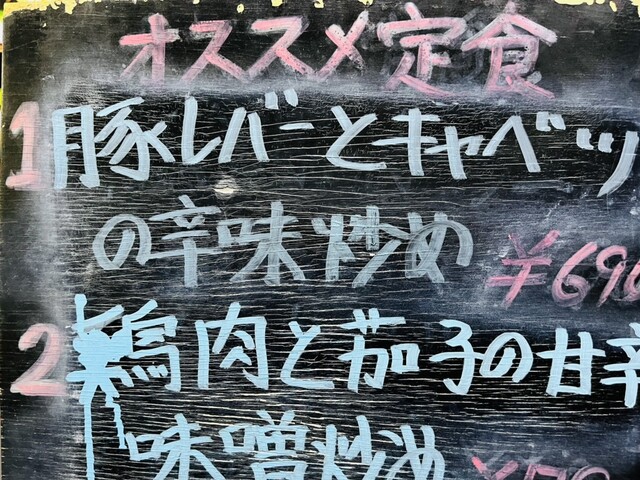 オススメ定食
1 豚レバーとキャベツ
の辛味炒め ¥690
2 鶏肉と茄子の甘辛
味噌炒め